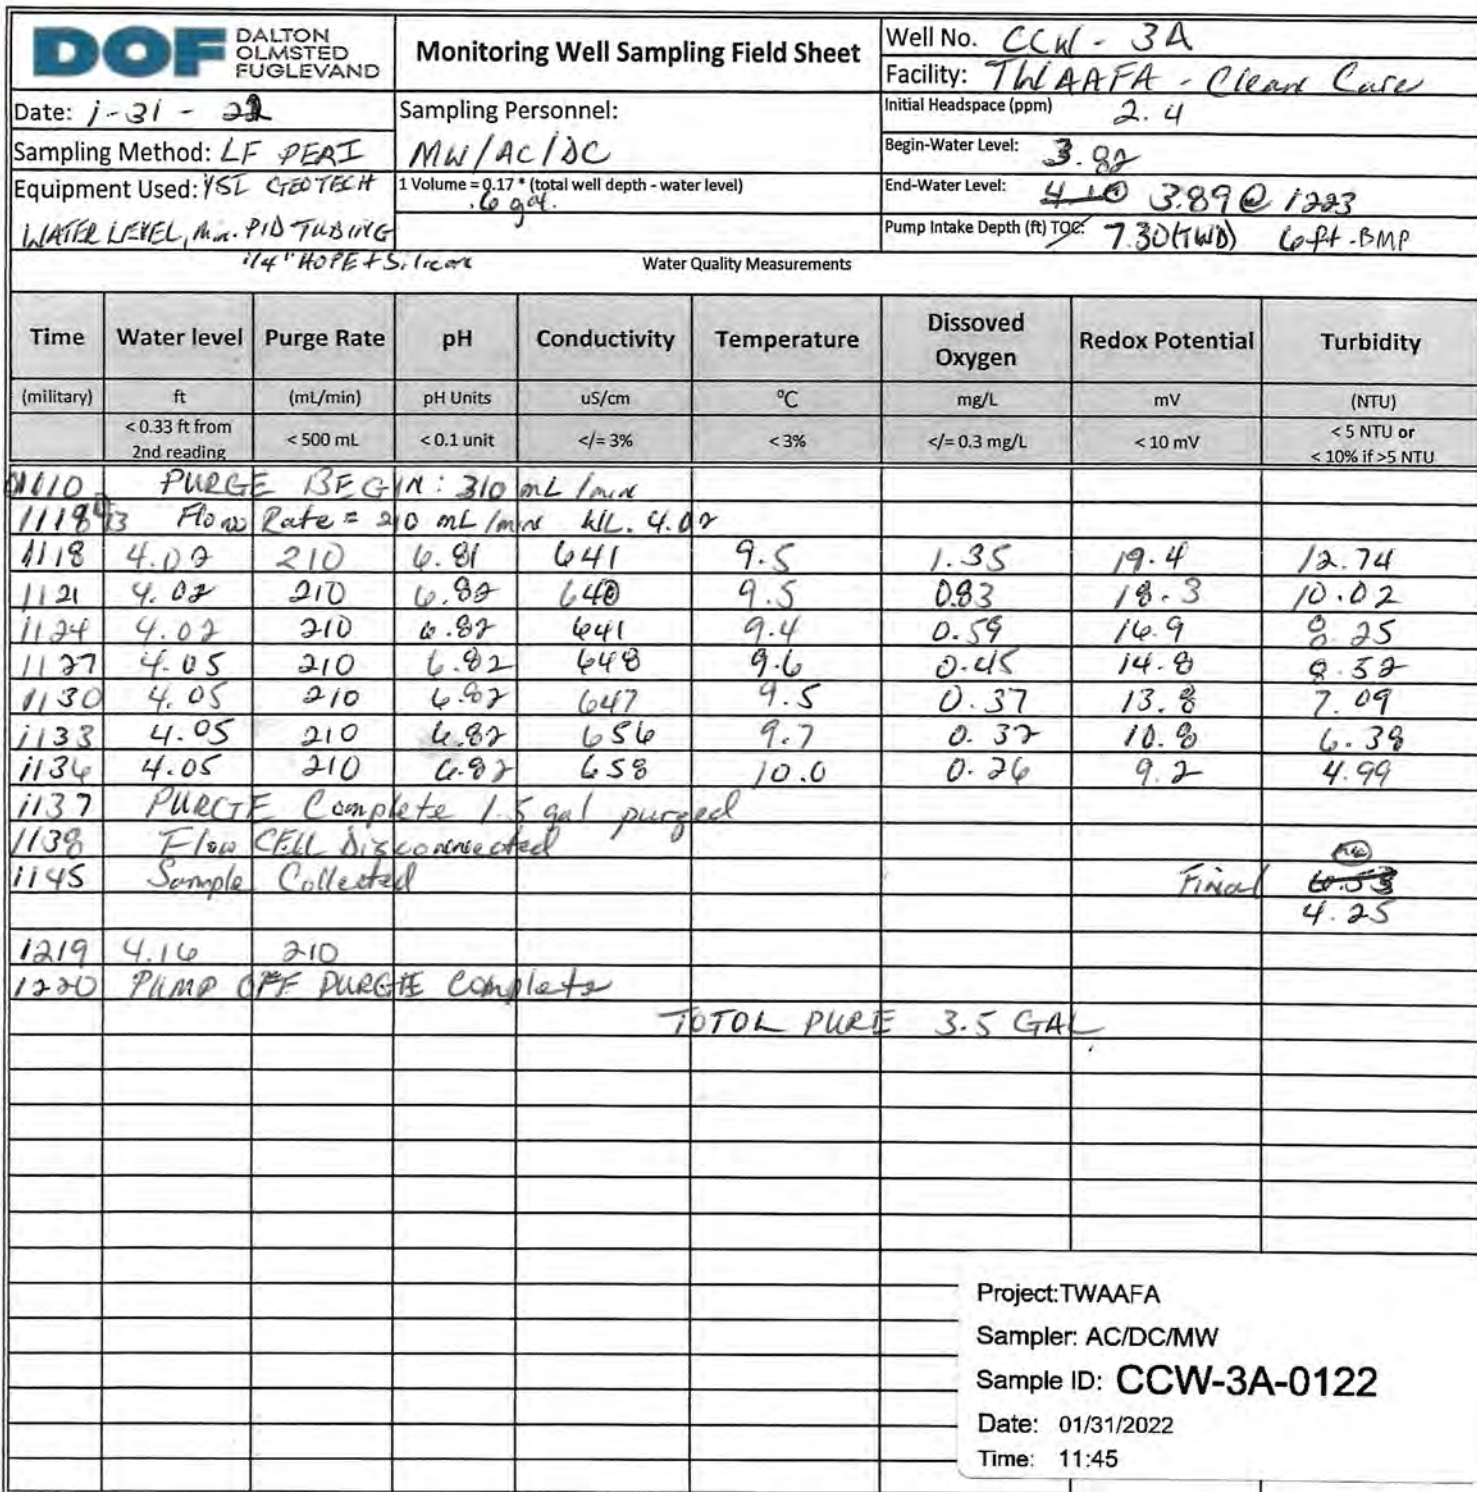 DOF DALTON OLMSTED FUGLEVAND
Monitoring Well Sampling Field Sheet
Well No. CCW - 3A
Facility: TWAAFA - Clean Care
Date: 1-31-22
Sampling Personnel:
MW/AC/DC
Initial Headspace (ppm) 2.4
Sampling Method: LF PERI
Begin-Water Level: 3.82
Equipment Used: YSI GEOTECH
WATER LEVEL, Min. PID TUBING
1/4" HDPE + Silicone
1 Volume = 0.17 * (total well depth - water level)
.6 gal.
End-Water Level: 4.10 3.89 @ 1223
Pump Intake Depth (ft) TOC: 7.30 (TWD) 6 ft - BMP
Water Quality Measurements
Time Water level Purge Rate pH Conductivity Temperature Dissoved Oxygen Redox Potential Turbidity
(military) ft (mL/min) pH Units uS/cm °C mg/L mV (NTU)
< 0.33 ft from 2nd reading < 500 mL < 0.1 unit </= 3% < 3% </= 0.3 mg/L < 10 mV < 5 NTU or < 10% if >5 NTU
1110 PURGE BEGIN: 310 mL/min
Flow Rate = 210 mL/min WL. 4.02
1118 4.02 210 6.81 641 9.5 1.35 19.4 12.74
1121 4.02 210 6.82 640 9.5 0.83 18.3 10.02
1124 4.02 210 6.82 641 9.4 0.59 16.9 8.25
1127 4.05 210 6.82 648 9.6 0.45 14.8 8.52
1130 4.05 210 6.82 647 9.5 0.37 13.8 7.09
1133 4.05 210 6.82 656 9.7 0.32 10.8 6.38
1136 4.05 210 6.82 658 10.0 0.26 9.2 4.99
1137 PURGE Complete 1.5 gal purged
1138 Flow CELL Disconnected
1145 Sample Collected Final 6.53
4.25
1219 4.16 210
1220 PUMP OFF PURGE Complete
TOTOL PURE 3.5 GAL
Project:TWAAFA
Sampler: AC/DC/MW
Sample ID: CCW-3A-0122
Date: 01/31/2022
Time: 11:45